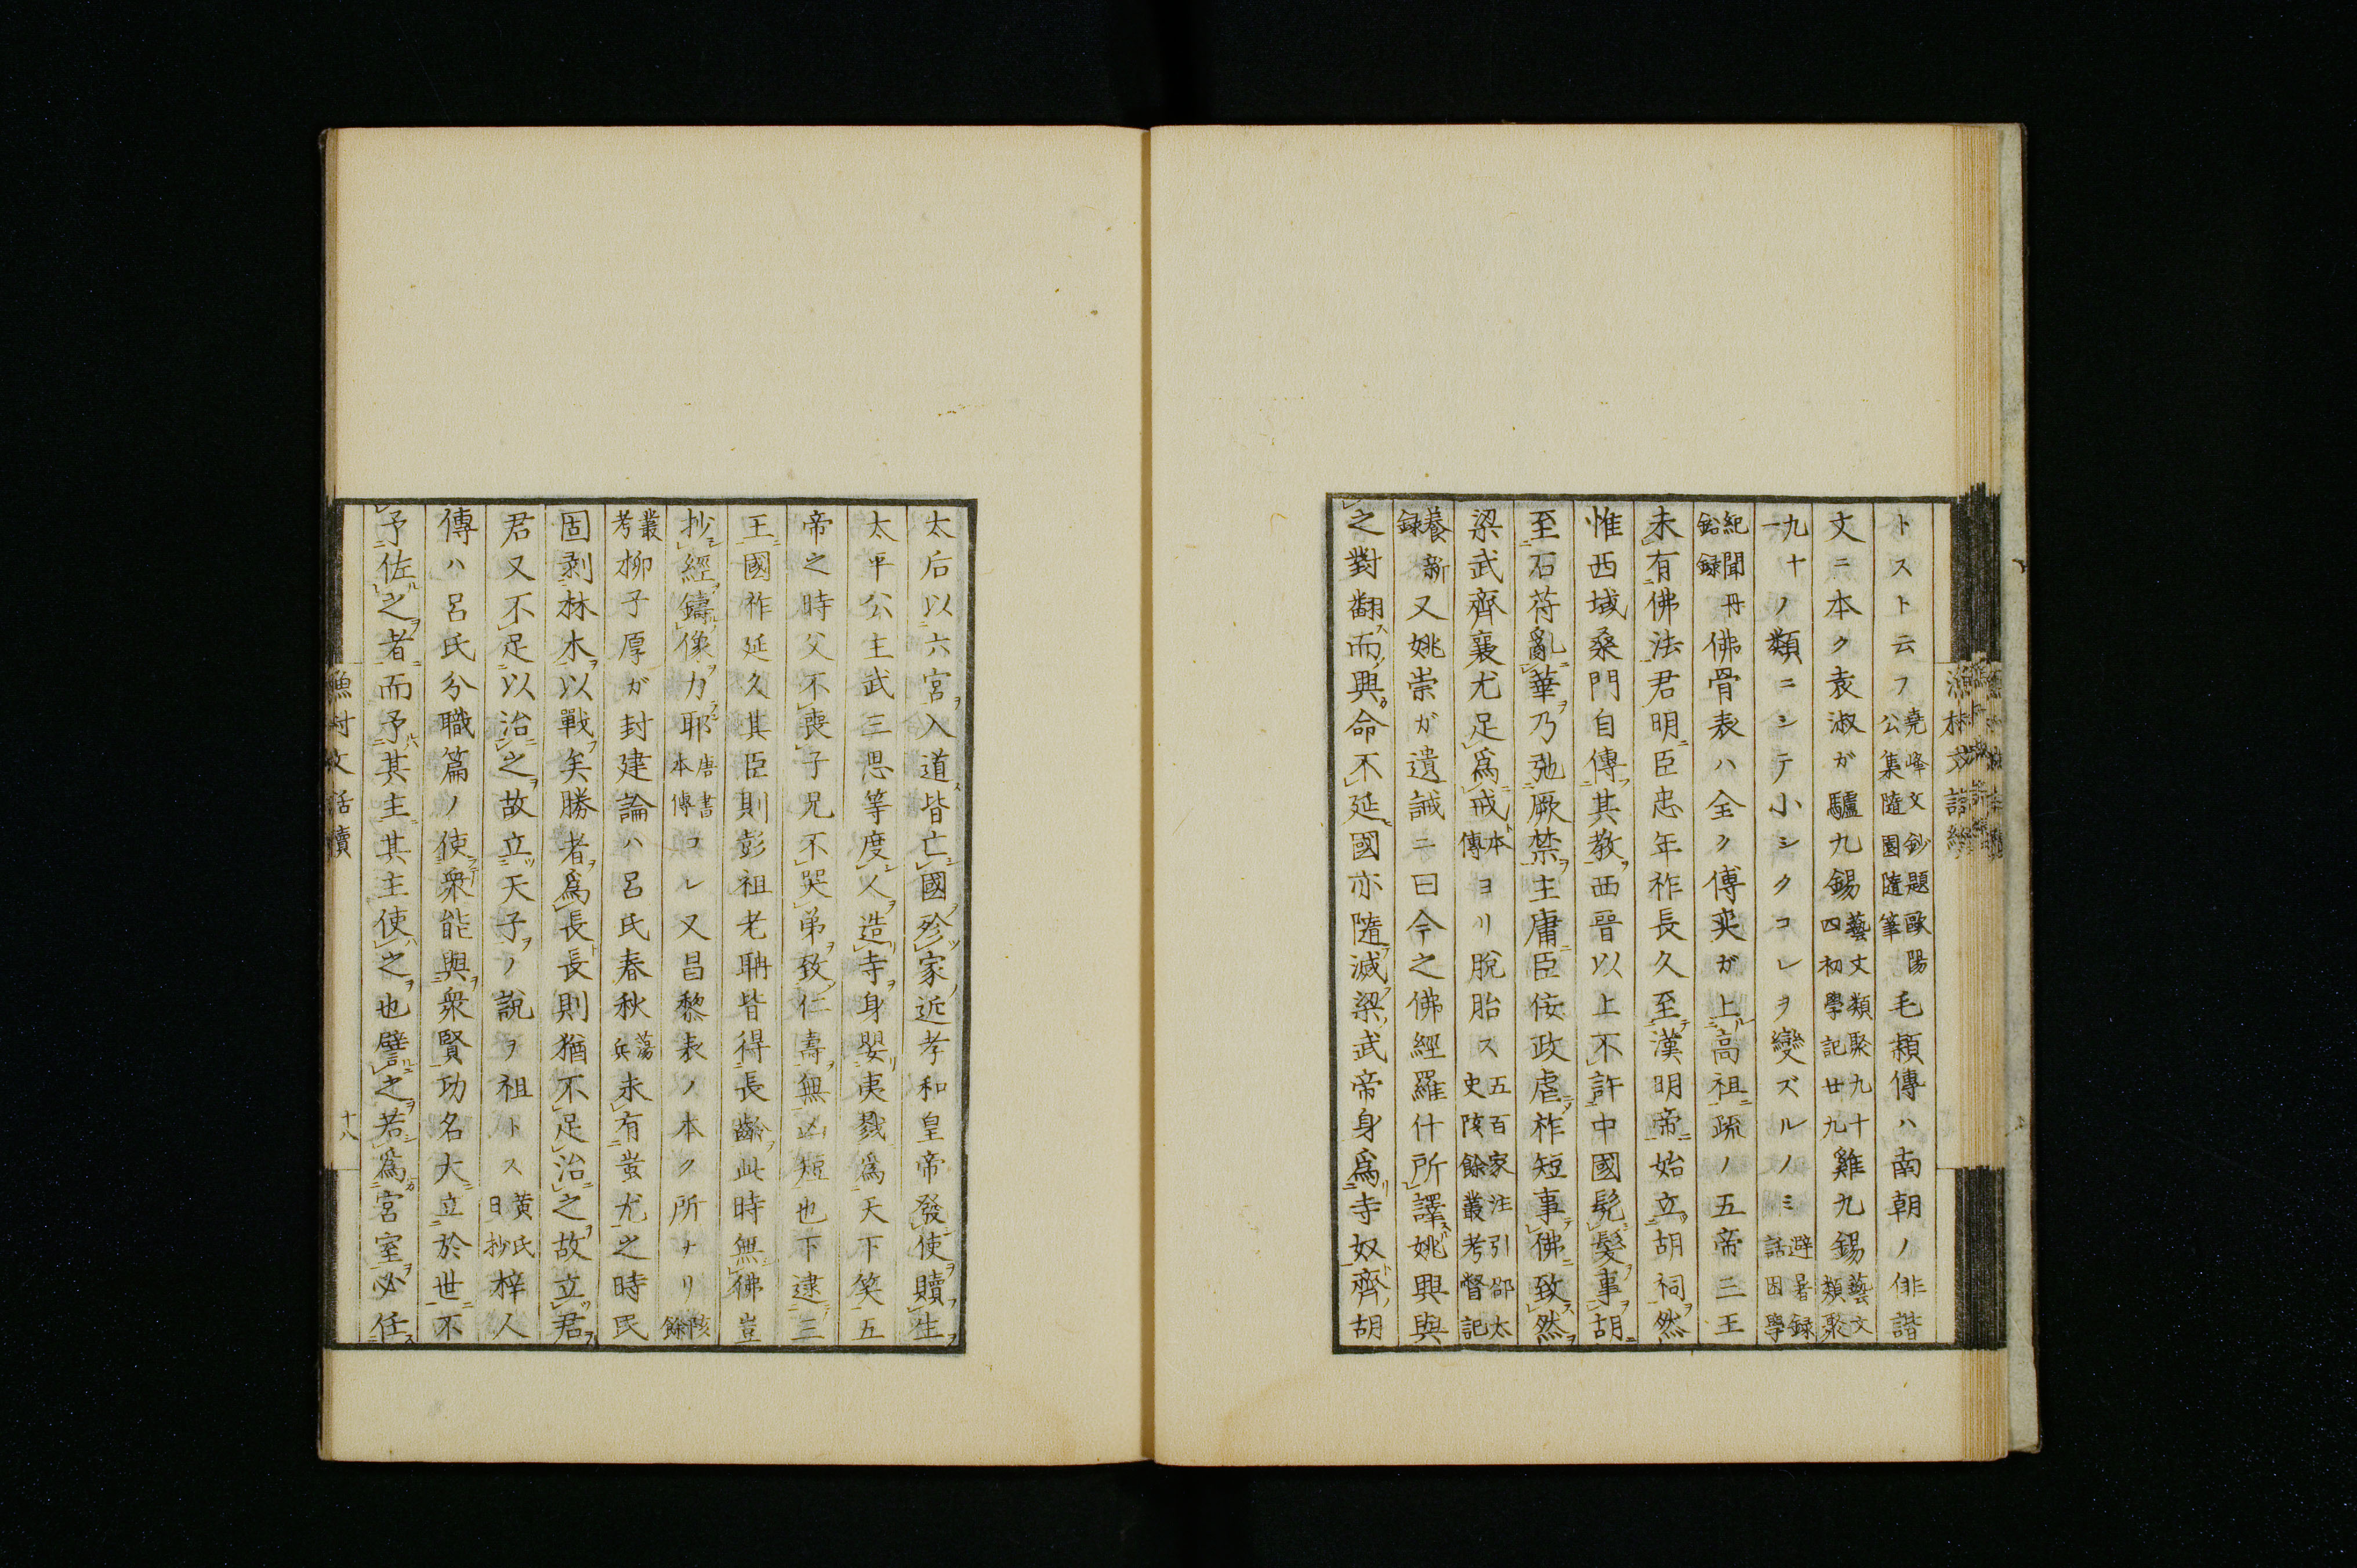 トスト云フ堯峰文鈔題歐陽公集隨園隨筆毛穎傳ハ南朝ノ俳諧
文ニ本ク袁淑ガ驢九錫藝文類聚九十四初學記廿九雞九錫藝文類聚
九十一ノ類ニシテ小シクコレヲ變ズルノミ避暑録話困學
紀聞丹鉛録佛骨表ハ全ク傅奕ガ上高祖疏ノ五帝三王
未有佛法君明臣忠年祚長久至漢明帝始立胡祠然
惟西域桑門自傳其教西晉以上不許中國髠髮事胡
至石苻亂華乃弛厥禁主庸臣佞政虐祚短事佛致然
梁武齊襄尤足爲戒本傳ヨリ脫胎ス五百家注引邵太史陔餘叢考督記
養新録又姚崇ガ遺誡ニ曰今之佛經羅什所譯姚興與
之對翻而興命不延國亦隨滅梁武帝身爲寺奴齊胡
太后以六宮入道皆亡國殄家近孝和皇帝發使贖生
太平公主武三思等度人造寺身嬰夷戮爲天下笑五
帝之時父不喪子兄不哭弟致仁壽無凶短也下逮三
王國祚延久其臣則彭祖老聃皆得長齡此時無佛豈
抄經鑄像力耶唐書本傳コレ又昌黎表ノ本ク所ナリ陔餘
叢考柳子厚ガ封建論ハ呂氏春秋蕩兵未有蚩尤之時民
固剥林木以戰矣勝者爲長長則猶不足治之故立君
君又不足以治之故立天子ノ說ヲ祖トス黄氏日抄梓人
傳ハ呂氏分職篇ノ使衆能與衆賢功名大立於世不
予佐之者而予其主其主使之也譬之若爲宮室必任
漁村文話續
十八